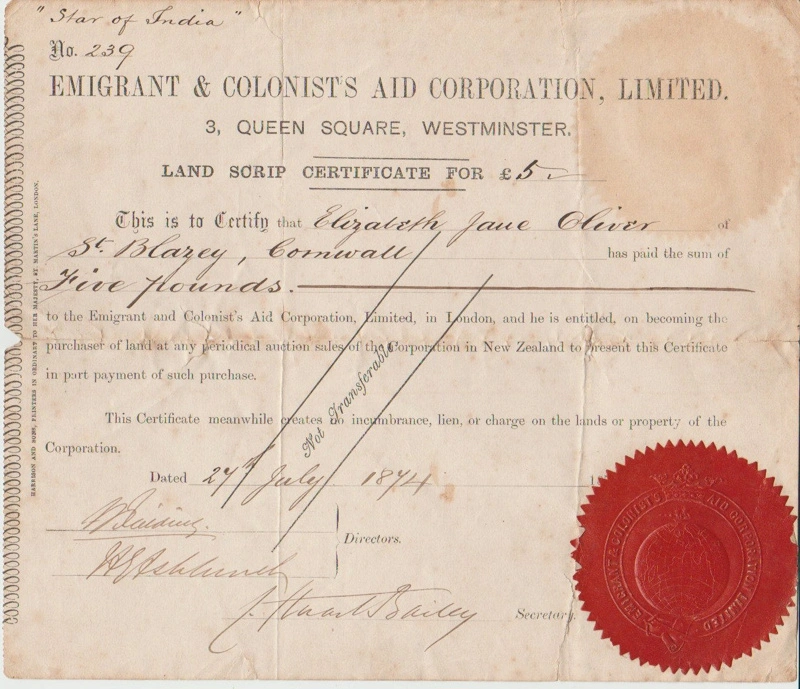 "Star of India"
No. 239
EMIGRANT & COLONIST'S AID CORPORATION, LIMITED.
3, QUEEN SQUARE, WESTMINSTER.
LAND SCRIP CERTIFICATE FOR £5
This is to Certify that Elizabeth Jane Oliver of
St. Blazey, Cornwall has paid the sum of
Five pounds.
to the Emigrant and Colonist's Aid Corporation, Limited, in London, and he is entitled, on becoming the
purchaser of land at any periodical auction sales of the Corporation in New Zealand to present this Certificate
in part payment of such purchase.
Not Transferable
This Certificate meanwhile creates no incumbrance, lien, or charge on the lands or property of the
Corporation.
Dated 27th July 1874 1
Directors.
J. Stuart Bailey Secretary.
EMIGRANT & COLONIST'S AID CORPORATION LIMITED
HARRISON AND SONS, PRINTERS IN ORDINARY TO HER MAJESTY, ST. MARTIN'S LANE, LONDON.